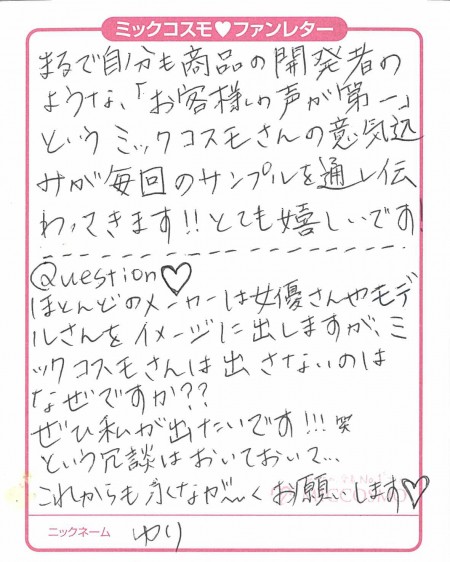 ミックコスモ♥ファンレター
まるで自分も商品の開発者の
ような、「お客様の声が第一」
というミックコスモさんの意気込
みが毎回のサンプルを通し伝
わってきます!!とても嬉しいです!
Question♡
ほとんどのメーカーは女優さんやモデ
ルさんをイメージに出しますが、ミ
ックコスモさんは出さないのは
なぜですか??
ぜひ私が出たいです!!!笑
という冗談はおいておいて…
これからも永くなが〜くお願いします♡
ニックネーム ゆり